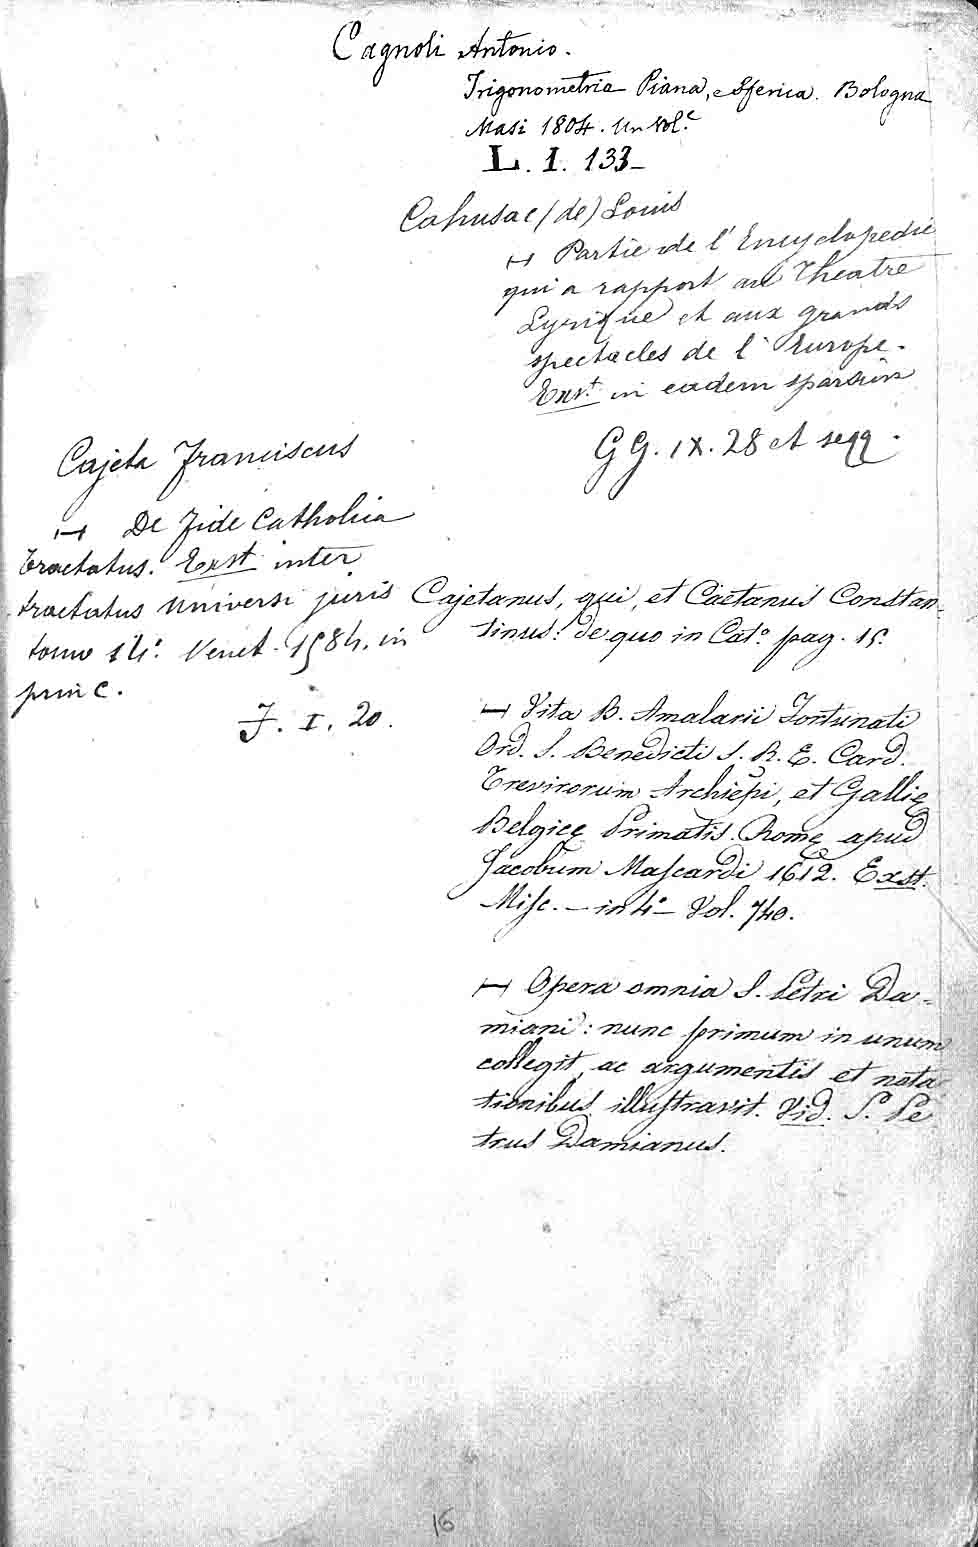 Cagnoli Antonio.
Trigonometria Piana, e Sferica. Bologna
Masi 1804. Un Vol.e
L. I. 133-
Cahusac (de) Louis
⊢ Partie de l'Encyclopedie
qui a rapport au Theatre
Lyrique et aux grands
spectacles de l'Europe.
Exst. in eadem sparsim
GG. IX. 28 et seqq.
Cajeta Franciscus
⊢ De Fide Catholica
tractatus. Exst inter
tractatus universi juris
tomo 14.° Venet. 1584. in
princ.
F. I. 20.
Cajetanus, qui, et Caëtanus Constan-
tinus: de quo in Cat.° pag. 15.
⊢ Vita B. Amalarii Fortunati
Ord. S. Benedicti S. R. E. Card.
Trevirorum Archiepi, et Gallię
Belgicę Primatis. Romę apud
Jacobum Mascardi 1612. Exst.
Misc. - in 4.° - Vol. 740.
⊢ Opera omnia S. Petri Da-
miani: nunc primum in unum
collegit, ac argumentis et nota
tionibus illustravit. Vid. S. Pe
trus Damianus.
16